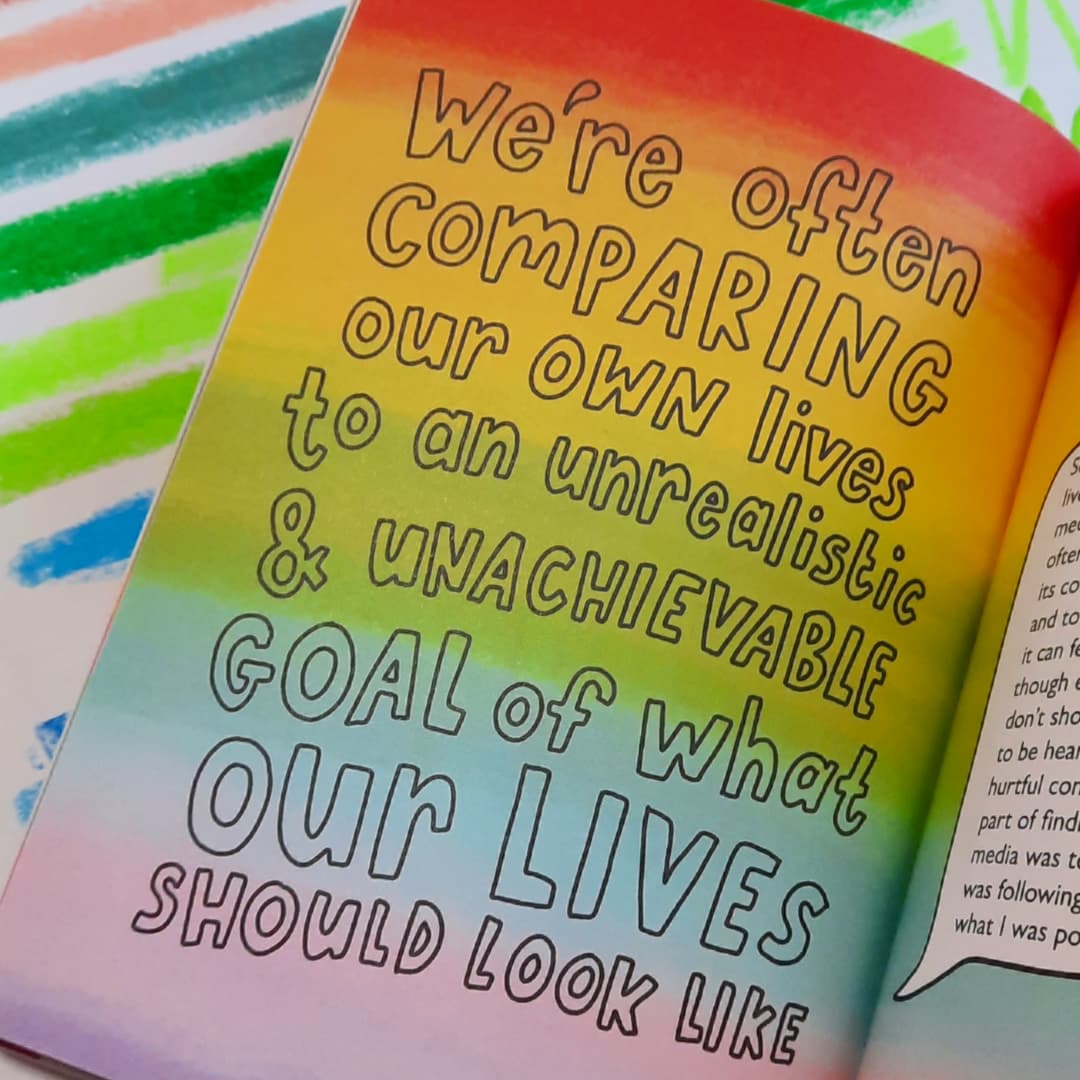 We're often
COMPARING
our OWN lives
to an unrealistic
& UNACHIEVABLE
GOAL of what
our LIVES
SHOULD LOOK LIKE
often
its
and to
it can
though
don't
to be
hurtful
part of
media was
was following
what I was